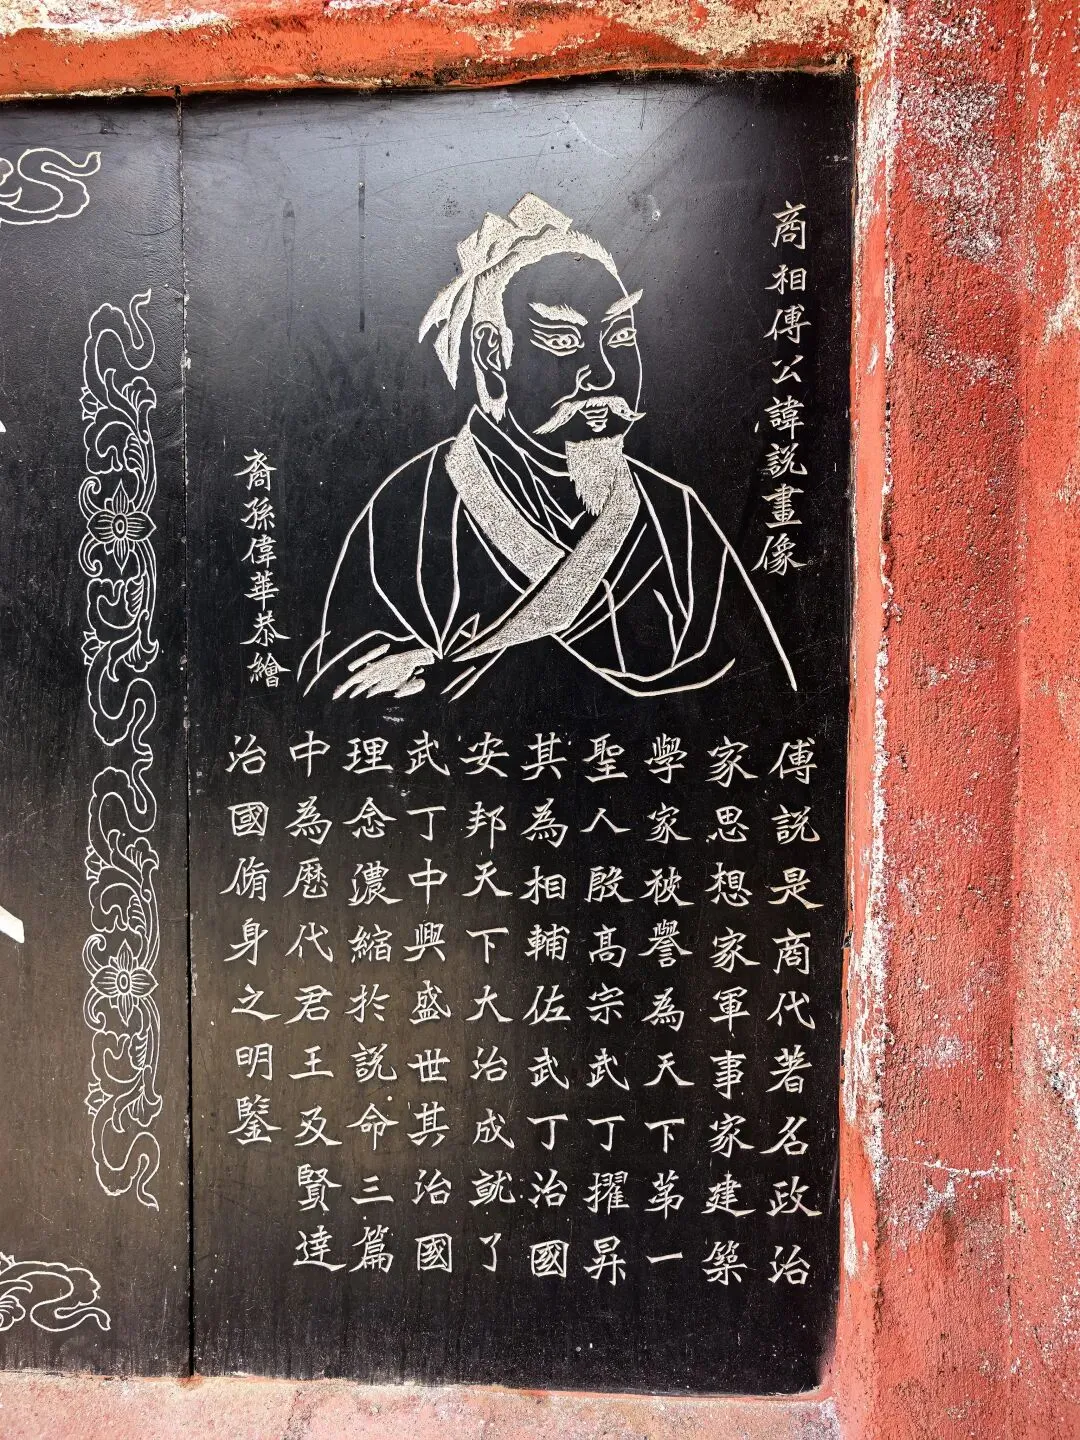 商相傅公諱説畫像
裔孫偉華恭繪
傅説是商代著名政治
家思想家軍事家建築
學家被譽為天下第一
聖人殷高宗武丁擢昇
其為相輔佐武丁治國
安邦天下大治成就了
武丁中興盛世其治國
理念濃縮於説命三篇
中為歷代君王及賢達
治國脩身之明鑒